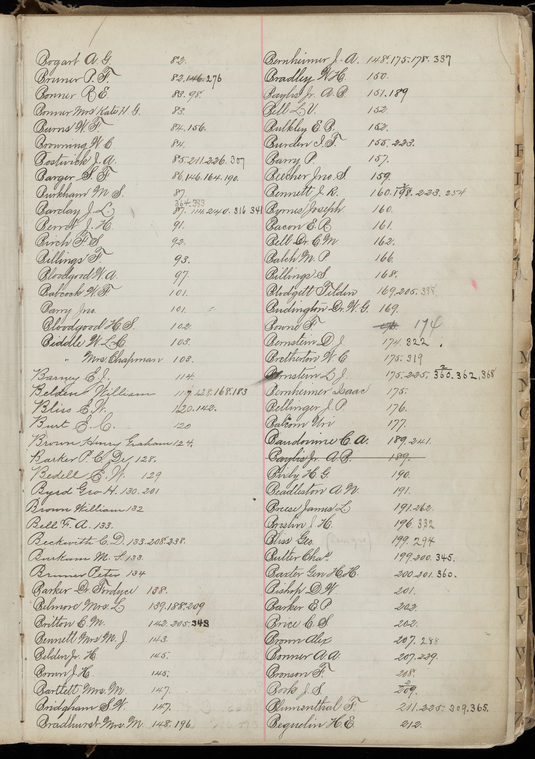 Bogart A G 82.
Bruner P. F. 82.146.276
Bonner R E. 83.98.
Bonner Mrs Kate H G. 83.
Burns W. F. 84.156.
Browning W. C 84.
Bostwick J. A. 85.211.226.307
Barger S. F. 86.146.164.190.
Burkham M S. 87
364.383
Barclay J. L. 87.114.240.316 341
Berret J. H. 91.
Birch F S 92.
Billings F. 93.
Bloodgood W A 97
Babcock W. F 101.
Barry Jno. 101.
Bloodgood H S. 102
Beddle W L C 103.
" Mrs. Chapman 103.
Barney E J. 114.
Belden William 117.128.168.183
Bliss E. W. 120.142.
Burt S. C. 120
Brown Henry Graham 124.
Barker P. C. Dr. 128.
Bedell E. W. 129
Byrd Geo H. 130.201
Brown William 132
Bell F. A. 133.
Beckwith C. D. 133.208.238.
Burkam M. S. 133.
Bruner Peter 134
Barker D. Fordyce 138.
Belmont Mrs. L 139.188.209
Britton C. M. 142.205.348
Bennett Mrs M. J 143.
Belden Jr. H 145.
Brown J. H. 145.
Bartlett Mrs. M. 147.
Bridgham S. W. 147.
Bradhurst Mrs. M. 148.196
Bernheimer J. A. 148.175.178.337
Bradley W. H. 150.
Baylis Jr. A. B. 151.189
Bell L V. 152.
Bulkley E. B. 152.
Burden I. T 155.223.
Barry P. 157.
Beecher Jno. S 159.
Bennett J. R. 160.198.223.254
Byrnes Joseph 160.
Bacon E. R 161.
Bell Dr. C M 162.
Balch M. P 166
Billings S 168.
Blodgett Tilden 169.205.338
Budington Dr. W. G. 169.
Bound F. 174
Bernstein D J 174.322
Bretherton W. C 175.319
Bernstein L J 175.225.360.362.368
Bernheimer Isaac 175.
Bellinger J. P 176.
Balcom Uri 177.
Baudouine C A. 189.241.
Baylis Jr. A B. 189.
Bixby H G. 190.
Beadleston A N. 191.
Breese James L 191.262.
Breslin J. H. 196 332
Bliss Geo. 199.294
Butler Chas 199.200.345.
Baxter Gen H. H. 200.201.360.
Bishop D. W. 201.
Barker E P 202.
Brice C S 202.
Brown Alex 207.288
Bonner A A. 207.239.
Bronson F. 208.
Bork J. S. 209.
Blumenthal F. 211.225.309.365.
Beguelin H. E. 212.